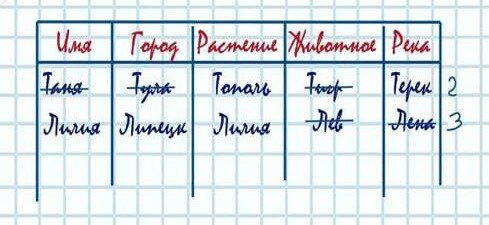 Имя Город Растение Животное Река
Таня Тула Тополь Тигр Терек 2
Лилия Липецк Лилия Лев Лена 3